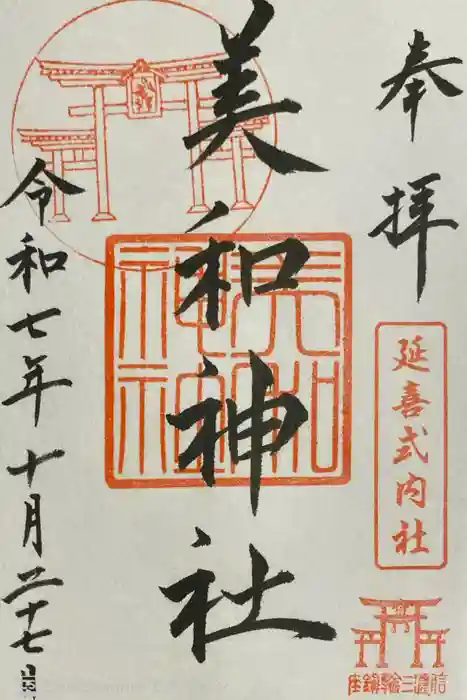 奉拝
延喜式内社
美和神社
美和神社
令和七年十月二十七日